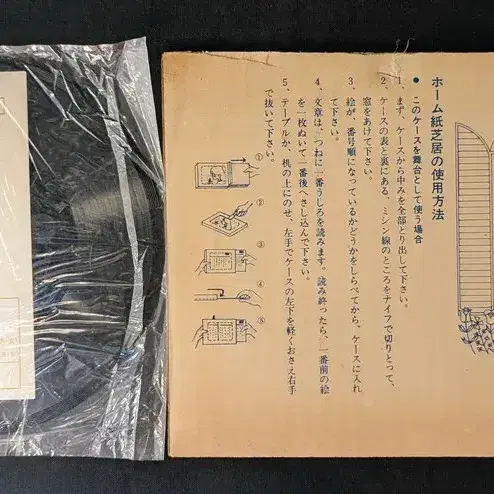 ホーム紙芝居の使用方法
● このケースを舞台として使う場合
1、まず、ケースから中みを全部とり出して下さい。
2、ケースの表と裏にある、ミシン線のところをナイフで切りとって、
窓をあけて下さい。
3、絵が、番号順になっているかどうかをしらべてから、ケースに入れ
て下さい。
4、文章は、つねに一番うしろを読みます。読み終ったら、一番前の絵
を一枚ぬいて一番後へさし込んで下さい。
5、テーブルか、机の上にのせ、左手でケースの左下を軽くおさえ右手
で抜いて下さい。
①
②
③
④
⑤